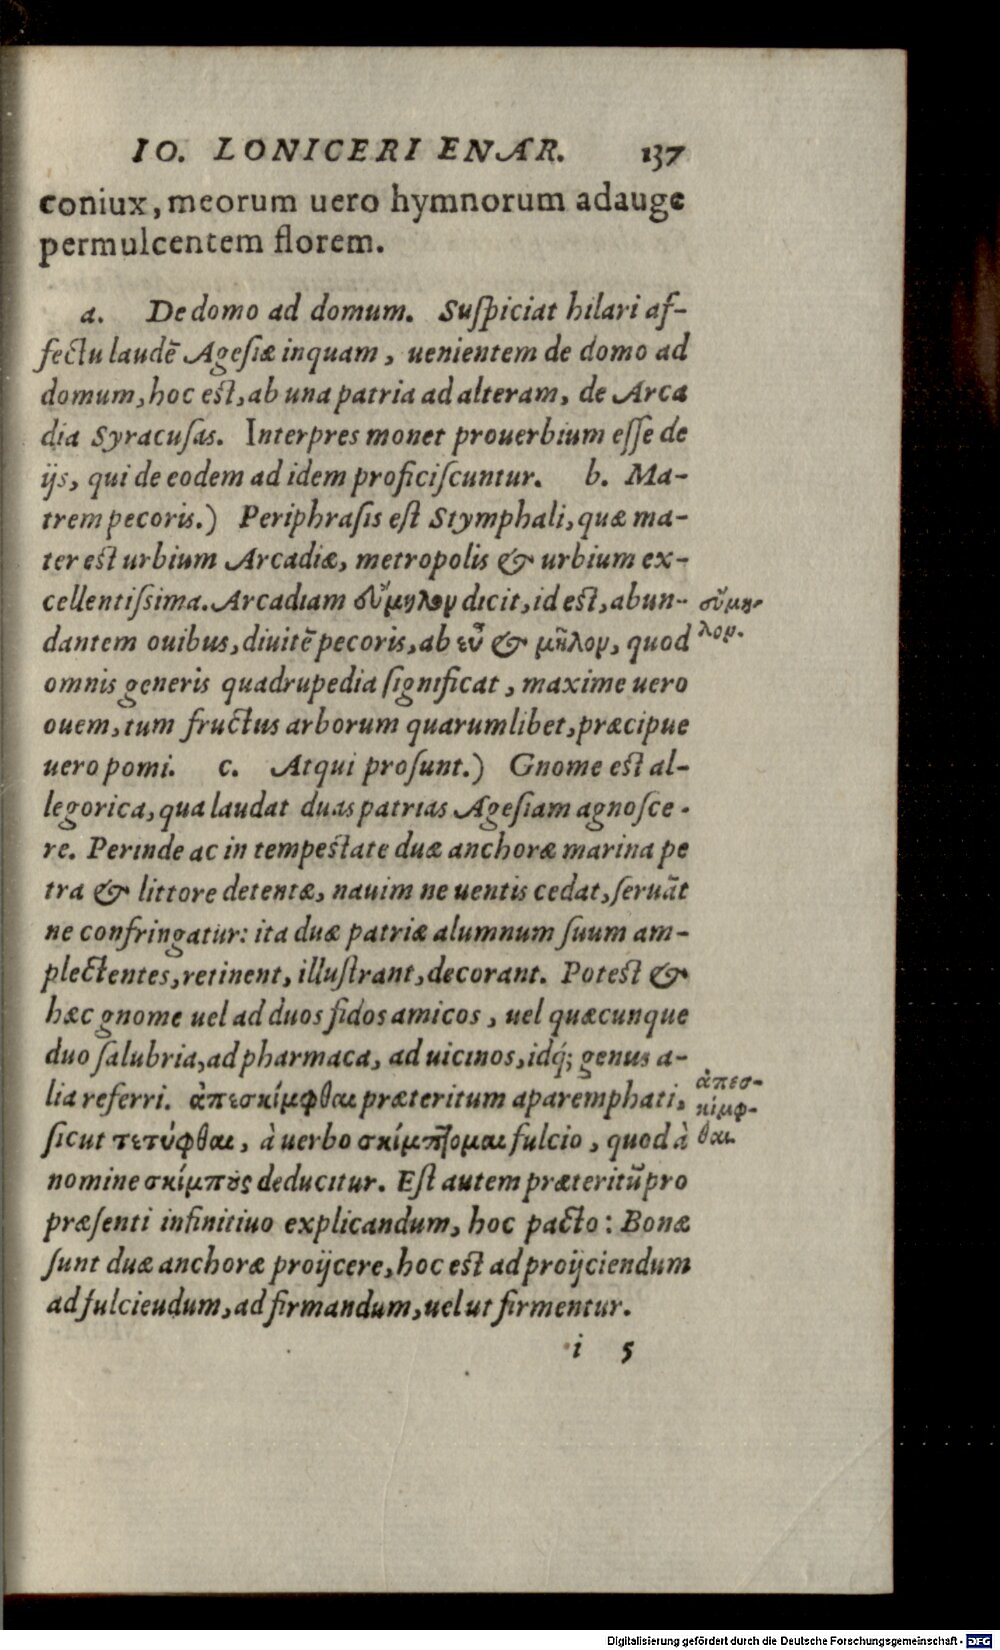 IO. LONICERI ENAR. 137
coniux, meorum uero hymnorum adauge
permulcentem florem.
a. De domo ad domum. Suſpiciat hilari af-
fectu laudē Ageſiæ inquam, uenientem de domo ad
domum, hoc eſt, ab una patria ad alteram, de Arca
dia Syracuſas. Interpres monet prouerbium eſſe de
ijs, qui de eodem ad idem proficiſcuntur. b. Ma-
trem pecoris.) Periphraſis eſt Stymphali, quæ ma-
ter eſt urbium Arcadiæ, metropolis & urbium ex-
cellentiſsima. Arcadiam εὔμηλον dicit, id est, abun-
dantem ouibus, diuitē pecoris, ab εὖ & μῆλον, quod
omnis generis quadrupedia ſignificat, maxime uero
ouem, tum fructus arborum quarumlibet, præcipue
uero pomi. c. Atqui proſunt.) Gnome eſt al-
legorica, qua laudat duas patrias Ageſiam agnoſce-
re. Perinde ac in tempeſtate duæ anchoræ marina pe
tra & littore detentæ, nauim ne uentis cedat, ſeruāt
ne confringatur: ita duæ patriæ alumnum ſuum am-
plectentes, retinent, illuſtrant, decorant. Poteſt &
hæc gnome uel ad duos fidos amicos, uel quæcunque
duo ſalubria, ad pharmaca, ad uicinos, idq́; genus a-
lia referri. ἀπεσκίμφθαι præteritum aparemphati,
ſicut τετύφθαι, à uerbo σκίμπτομαι fulcio, quod à
nomine σκίμπους deducitur. Eſt autem præteritū pro
præſenti infinitiuo explicandum, hoc pacto: Bonæ
ſunt duæ anchoræ proijcere, hoc eſt ad proijciendum
ad fulciendum, ad firmandum, uel ut firmentur.
i 5
εὔμη-
λον.
ἀπεσ-
κίμφ-
θαι.
Digitalisierung gefördert durch die Deutsche Forschungsgemeinschaft - DFG